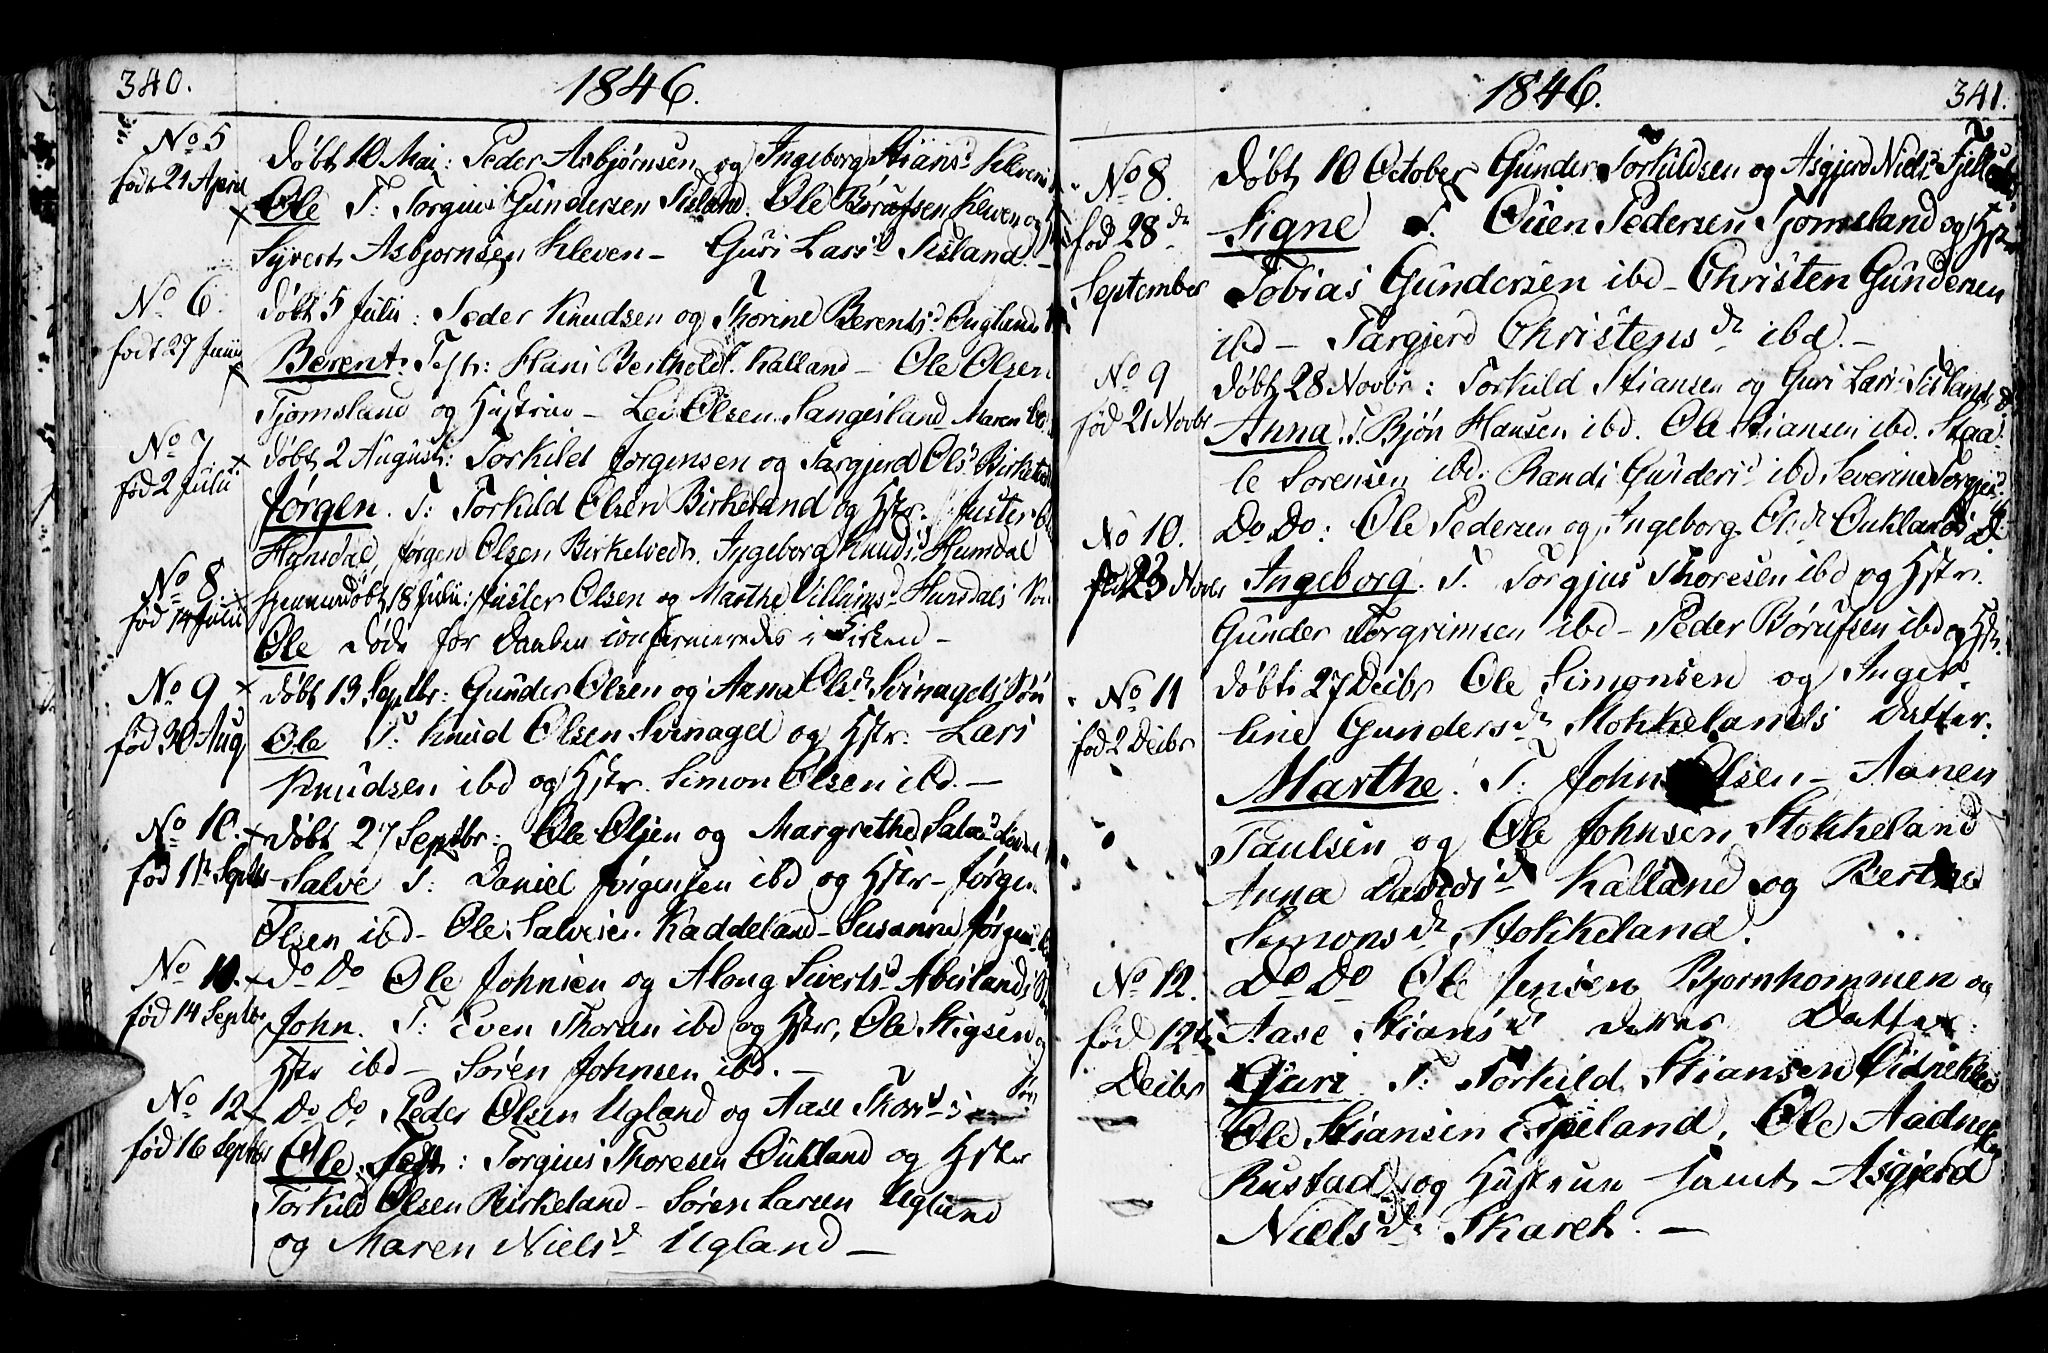 340.
1846.
No 5
født 21 April
døbt 10 Mai: Peder Asbjørnsen og Ingeborg Stians d Klevens
Ole T: Torgius Gundersen Sisland. Ole Børufsen Kleven og
Syvert Asbjornsen Kleven - Guri Lars d Sisland. -
No 6.
født 27 Junii
døbt 5 Julii: Peder Knudsen og Thorine Berents d Øuglands
Berent. Test: Hans Berthelds. Kalland - Ole Olsen
Tjomsland og Hustrue - Olsen Sangesland Maren
No 7.
fød 2 Julii
døbt 2 August: Torkild Jørgensen og Targjerd Ols d
Jørgen. T: Torkild Olsen Birkeland og Hstr. Juster
Homsdal, Jørgen Olsen Birkelvedt. Ingeborg Knuds d Humdal
No 8.
fød 14 Julii
hjemmedøbt 18 Julii: Juster Olsen og Marthe Villums d Humdals
Ole døde før Daaben confirmeredes i Kirken -
No 9
fød 30 Aug
døbt 13 Septbr: Gunder Olsen og Anna Ols d Svinagels Søn
Ole T: Knud Olsen Svinagel og Hstr. Lars
Knudsen ibd og Hstr. Simon Olsen ibd. -
No 10.
fød 11te Septbr
døbt 27 Septbr: Ole Olsen og Margrethe
Salve T: Daniel Jørgensen ibd og Hstr - Jørgen
Olsen ibd - Ole Salvesen Kaddeland - Susanne Jørgens
No 11.
fød 14 Septbr
Do Do Ole Johnsen og Along Siverts d Abeslands
John. T: Even Thorsen ibd og Hstr, Ole Stigsen og
Hstr ibd - Søren Johnsen ibd. -
No 12
fød 16 Septbr
Do Do Peder Olsen Ugland og Aase Thors d s Søn
Ole. Test: Torgius Thoresen Øukland og Hstr
Torkild Olsen Birkeland - Søren Larsen Ugland
og Maren Niels d Ugland -
1846.
341.
No 8.
fød 28 de
September
døbt 10 October Gunder Torkildsen og Asgjerd Niels d
Signe T. Ouen Pedersen Tjomsland og Hstr
Tobias Gundersen ibd - Christen Gundersen
ibd - Targjerd Christens d ibd. -
No 9
fød 21 Novbr
døbt 28 Novbr: Torkild Stiansen og Guri Lars d Sislands
Anna T. Bjøn Hansen ibd. Ole Stiansen ibd. Staa
le Sorensen ibd: Randi Gunders d ibd Severine
No 10.
fød 23 Novbr
Do Do: Ole Pedersen og Ingeborg Ols d Øuklands D.
Ingeborg. T. Torgjus Thoresen ibd og Hstr.
Gunder Torgrimsen ibd - Peder Børufsen ibd og Hstr.
No 11
fød 2 Decbr
døbt 27 Decbr Ole Simonsen og Inger-
line Gunders d Stokkelands datter.
Marthe. T. John Olsen - Aanen
Paulsen og Ole Johnsen Stokkeland
Anna Davids d Kalland og Berthe
Simons d Stokkeland.
No 12.
fød 12te
Decbr
Do Do Ole Jensen Bjornhommen og
Aase Stians d Datter
Guri T: Torkild Stiansen
Ole Stiansen Espeland, Ole Aadnes
Rustad og Hustrue samt Asgjerd
Niels d Skaret. -